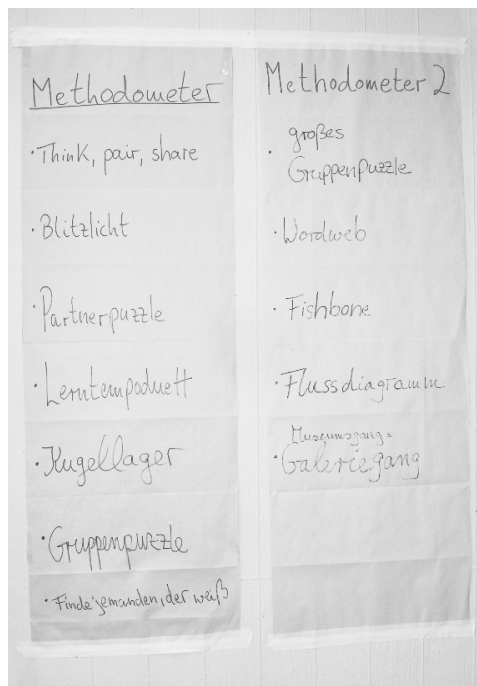 Methodometer
· Think, pair, share
· Blitzlicht
· Partnerpuzzle
· Lerntempoduett
· Kugellager
· Gruppenpuzzle
· Finde jemanden, der weiß
Methodometer 2
· großes
Gruppenpuzzle
· Wordweb
· Fishbone
· Flussdiagramm
Museumsgang =
· Galeriegang